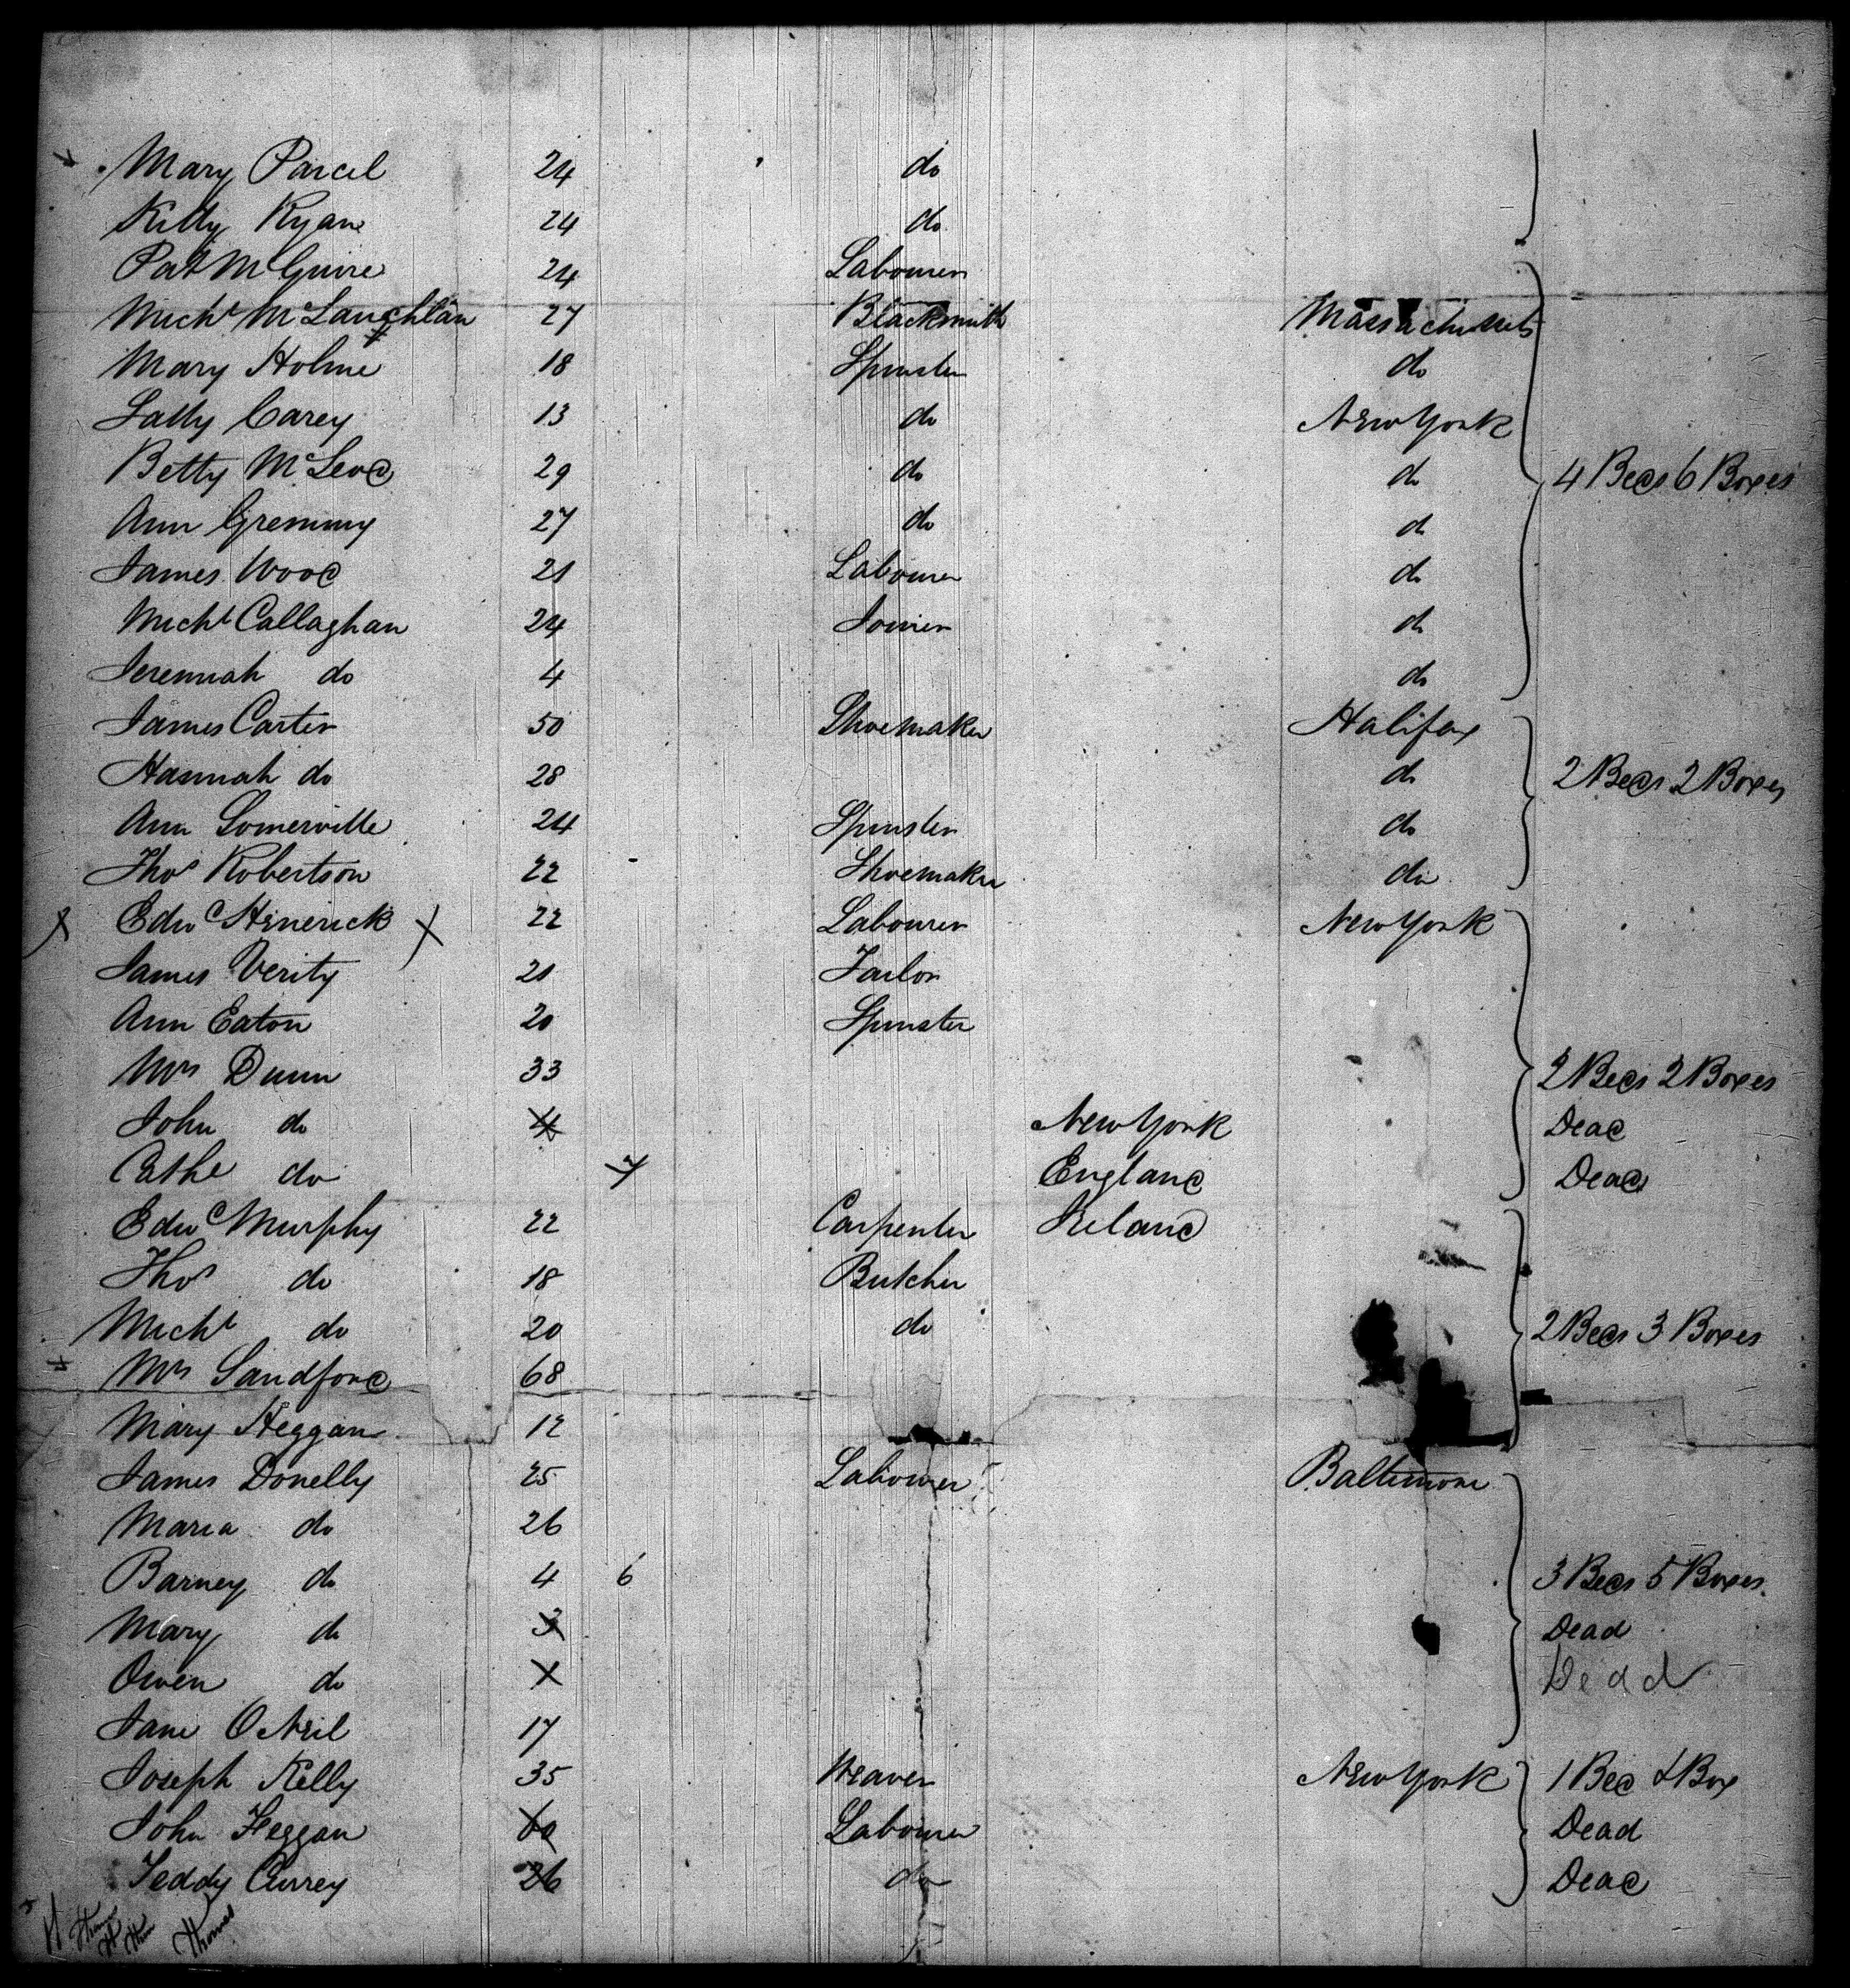 Mary Parcel 24 do
Kitty Ryan 24 do
Pat McGuire 24 Labourer
Michl McLaughlan 27 Blacksmith Massachusets
Mary Holme 18 Spinster do
Sally Carey 13 do New York
Betty McLeod 29 do do 4 Beds 6 Boxes
Ann Gremmy 27 do do
James Wood 21 Labourer do
Michl Callaghan 24 Joiner do
Jeremiah do 4 do
James Carter 50 Shoemaker Halifax
Hannah do 28 do 2 Beds 2 Boxes
Ann Somerville 24 Spinster do
Thos Robertson 22 Shoemaker do
Edwd Hinerick 22 Labourer New York
James Verity 21 Tailor
Ann Eaton 20 Spinster
Mrs Dunn 33 2 Beds 2 Boxes
John do 4 New York Dead
Cathe do 7 England Dead
Edwd Murphy 22 Carpenter Ireland
Thos do 18 Butcher
Michl do 20 do 2 Beds 3 Boxes
Mrs Sandford 68
Mary Heggan 12
James Donelly 25 Labourer Baltimore
Maria do 26
Barney do 4 6 3 Beds 5 Boxes
Mary do 3 Dead
Owen do 1 Dead
Jane O Neil 17
Joseph Kelly 35 Weaver New York 1 Bed & Box
John Heggan 60 Labourer Dead
Teddy Currey 26 do Dead
Thomas